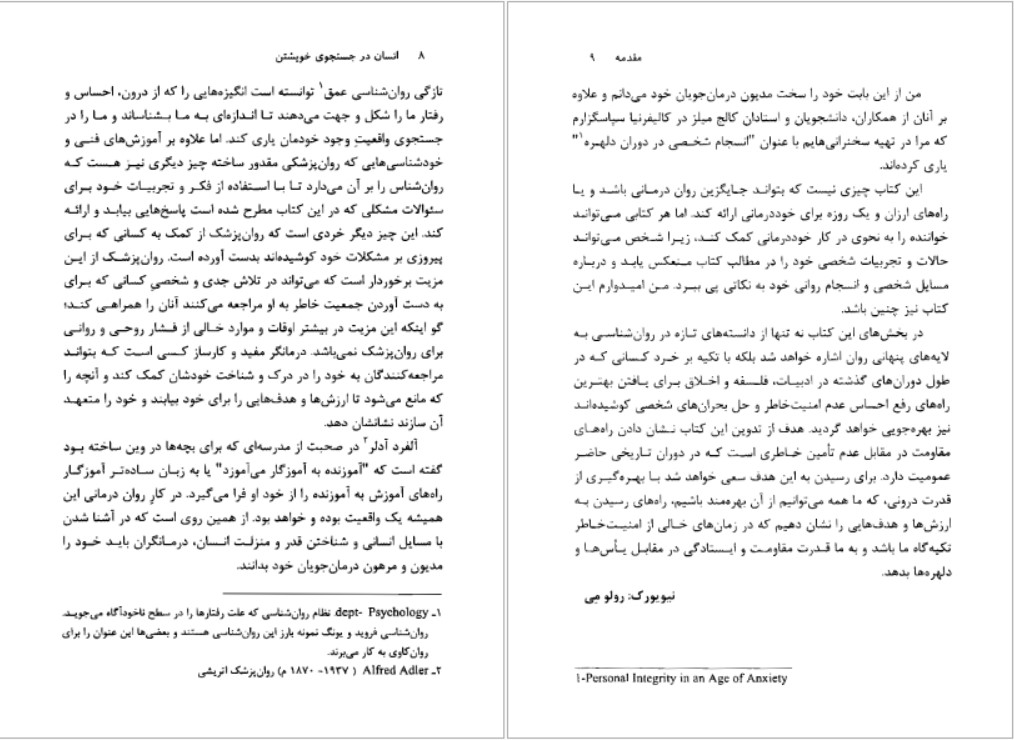 ۸ انسان در جستجوی خویشتن
تازگی روان‌شناسی عمق۱ توانسته است انگیزه‌هایی را که از درون، احساس و
رفتار ما را شکل و جهت می‌دهند تا اندازه‌ای به ما بشناساند و ما را در
جستجوی واقعیتِ وجود خودمان یاری کند. اما علاوه بر آموزش‌های فنی و
خودشناسی‌هایی که روان‌پزشکی مقدور ساخته چیز دیگری نیز هست که
روان‌شناس را بر آن می‌دارد تا با استفاده از فکر و تجربیات خود برای
سئوالات مشکلی که در این کتاب مطرح شده است پاسخ‌هایی بیابد و ارائه
کند. این چیز دیگر خردی است که روان‌پزشک از کمک به کسانی که برای
پیروزی بر مشکلات خود کوشیده‌اند بدست آورده است. روان‌پزشک از این
مزیت برخوردار است که می‌تواند در تلاش جدی و شخصیِ کسانی که برای
به دست آوردن جمعیت خاطر به او مراجعه می‌کنند آنان را همراهی کند؛
گو اینکه این مزیت در بیشتر اوقات و موارد خالی از فشار روحی و روانی
برای روان‌پزشک نمی‌باشد. درمانگر مفید و کارساز کسی است که بتواند
مراجعه‌کنندگان به خود را در درک و شناخت خودشان کمک کند و آنچه را
که مانع می‌شود تا ارزش‌ها و هدف‌هایی را برای خود بیابند و خود را متعهد
آن سازند نشانشان دهد.
آلفرد آدلر۲ در صحبت از مدرسه‌ای که برای بچه‌ها در وین ساخته بود
گفته است که "آموزنده به آموزگار می‌آموزد" یا به زبان ساده‌تر آموزگار
راه‌های آموزش به آموزنده را از خود او فرا می‌گیرد. در کارِ روان درمانی این
همیشه یک واقعیت بوده و خواهد بود. از همین روی است که در آشنا شدن
با مسایل انسانی و شناختن قدر و منزلت انسان، درمانگران باید خود را
مدیون و مرهون درمان‌جویان خود بدانند.
۱ـ dept- Psychology نظام روان‌شناسی که علت رفتارها را در سطح ناخودآگاه می‌جوید.
روان‌شناسی فروید و یونگ نمونه بارز این روان‌شناسی هستند و بعضی‌ها این عنوان را برای
روان‌کاوی به کار می‌برند.
۲ـ Alfred Adler ( ۱۹۳۷- ۱۸۷۰ م) روان‌پزشک اتریشی
مقدمه ۹
من از این بابت خود را سخت مدیون درمان‌جویان خود می‌دانم و علاوه
بر آنان از همکاران، دانشجویان و استادان کالج میلز در کالیفرنیا سپاسگزارم
که مرا در تهیه سخنرانی‌هایم با عنوان "انسجام شخصی در دوران دلهره۱"
یاری کرده‌اند.
این کتاب چیزی نیست که بتواند جایگزین روان درمانی باشد و یا
راه‌های ارزان و یک روزه برای خوددرمانی ارائه کند. اما هر کتابی می‌تواند
خواننده را به نحوی در کار خوددرمانی کمک کند، زیرا شخص می‌تواند
حالات و تجربیات شخصی خود را در مطالب کتاب منعکس یابد و درباره
مسایل شخصی و انسجام روانی خود به نکاتی پی ببرد. من امیدوارم این
کتاب نیز چنین باشد.
در بخش‌های این کتاب نه تنها از دانسته‌های تازه در روان‌شناسی به
لایه‌های پنهانی روان اشاره خواهد شد بلکه با تکیه بر خرد کسانی که در
طول دوران‌های گذشته در ادبیات، فلسفه و اخلاق برای یافتن بهترین
راه‌های رفع احساس عدم امنیت‌خاطر و حل بحران‌های شخصی کوشیده‌اند
نیز بهره‌جویی خواهد گردید. هدف از تدوین این کتاب نشان دادن راه‌های
مقاومت در مقابل عدم تأمین خاطری است که در دوران تاریخی حاضر
عمومیت دارد. برای رسیدن به این هدف سعی خواهد شد با بهره‌گیری از
قدرت درونی، که ما همه می‌توانیم از آن بهره‌مند باشیم، راه‌های رسیدن به
ارزش‌ها و هدف‌هایی را نشان دهیم که در زمان‌های خالی از امنیت‌خاطر
تکیه‌گاه ما باشد و به ما قدرت مقاومت و ایستادگی در مقابل یأس‌ها و
دلهره‌ها بدهد.
نیویورک: رولو می
1-Personal Integrity in an Age of Anxiety